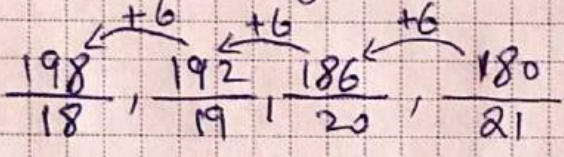 +6 +6 +6
198/18, 192/19, 186/20, 180/21